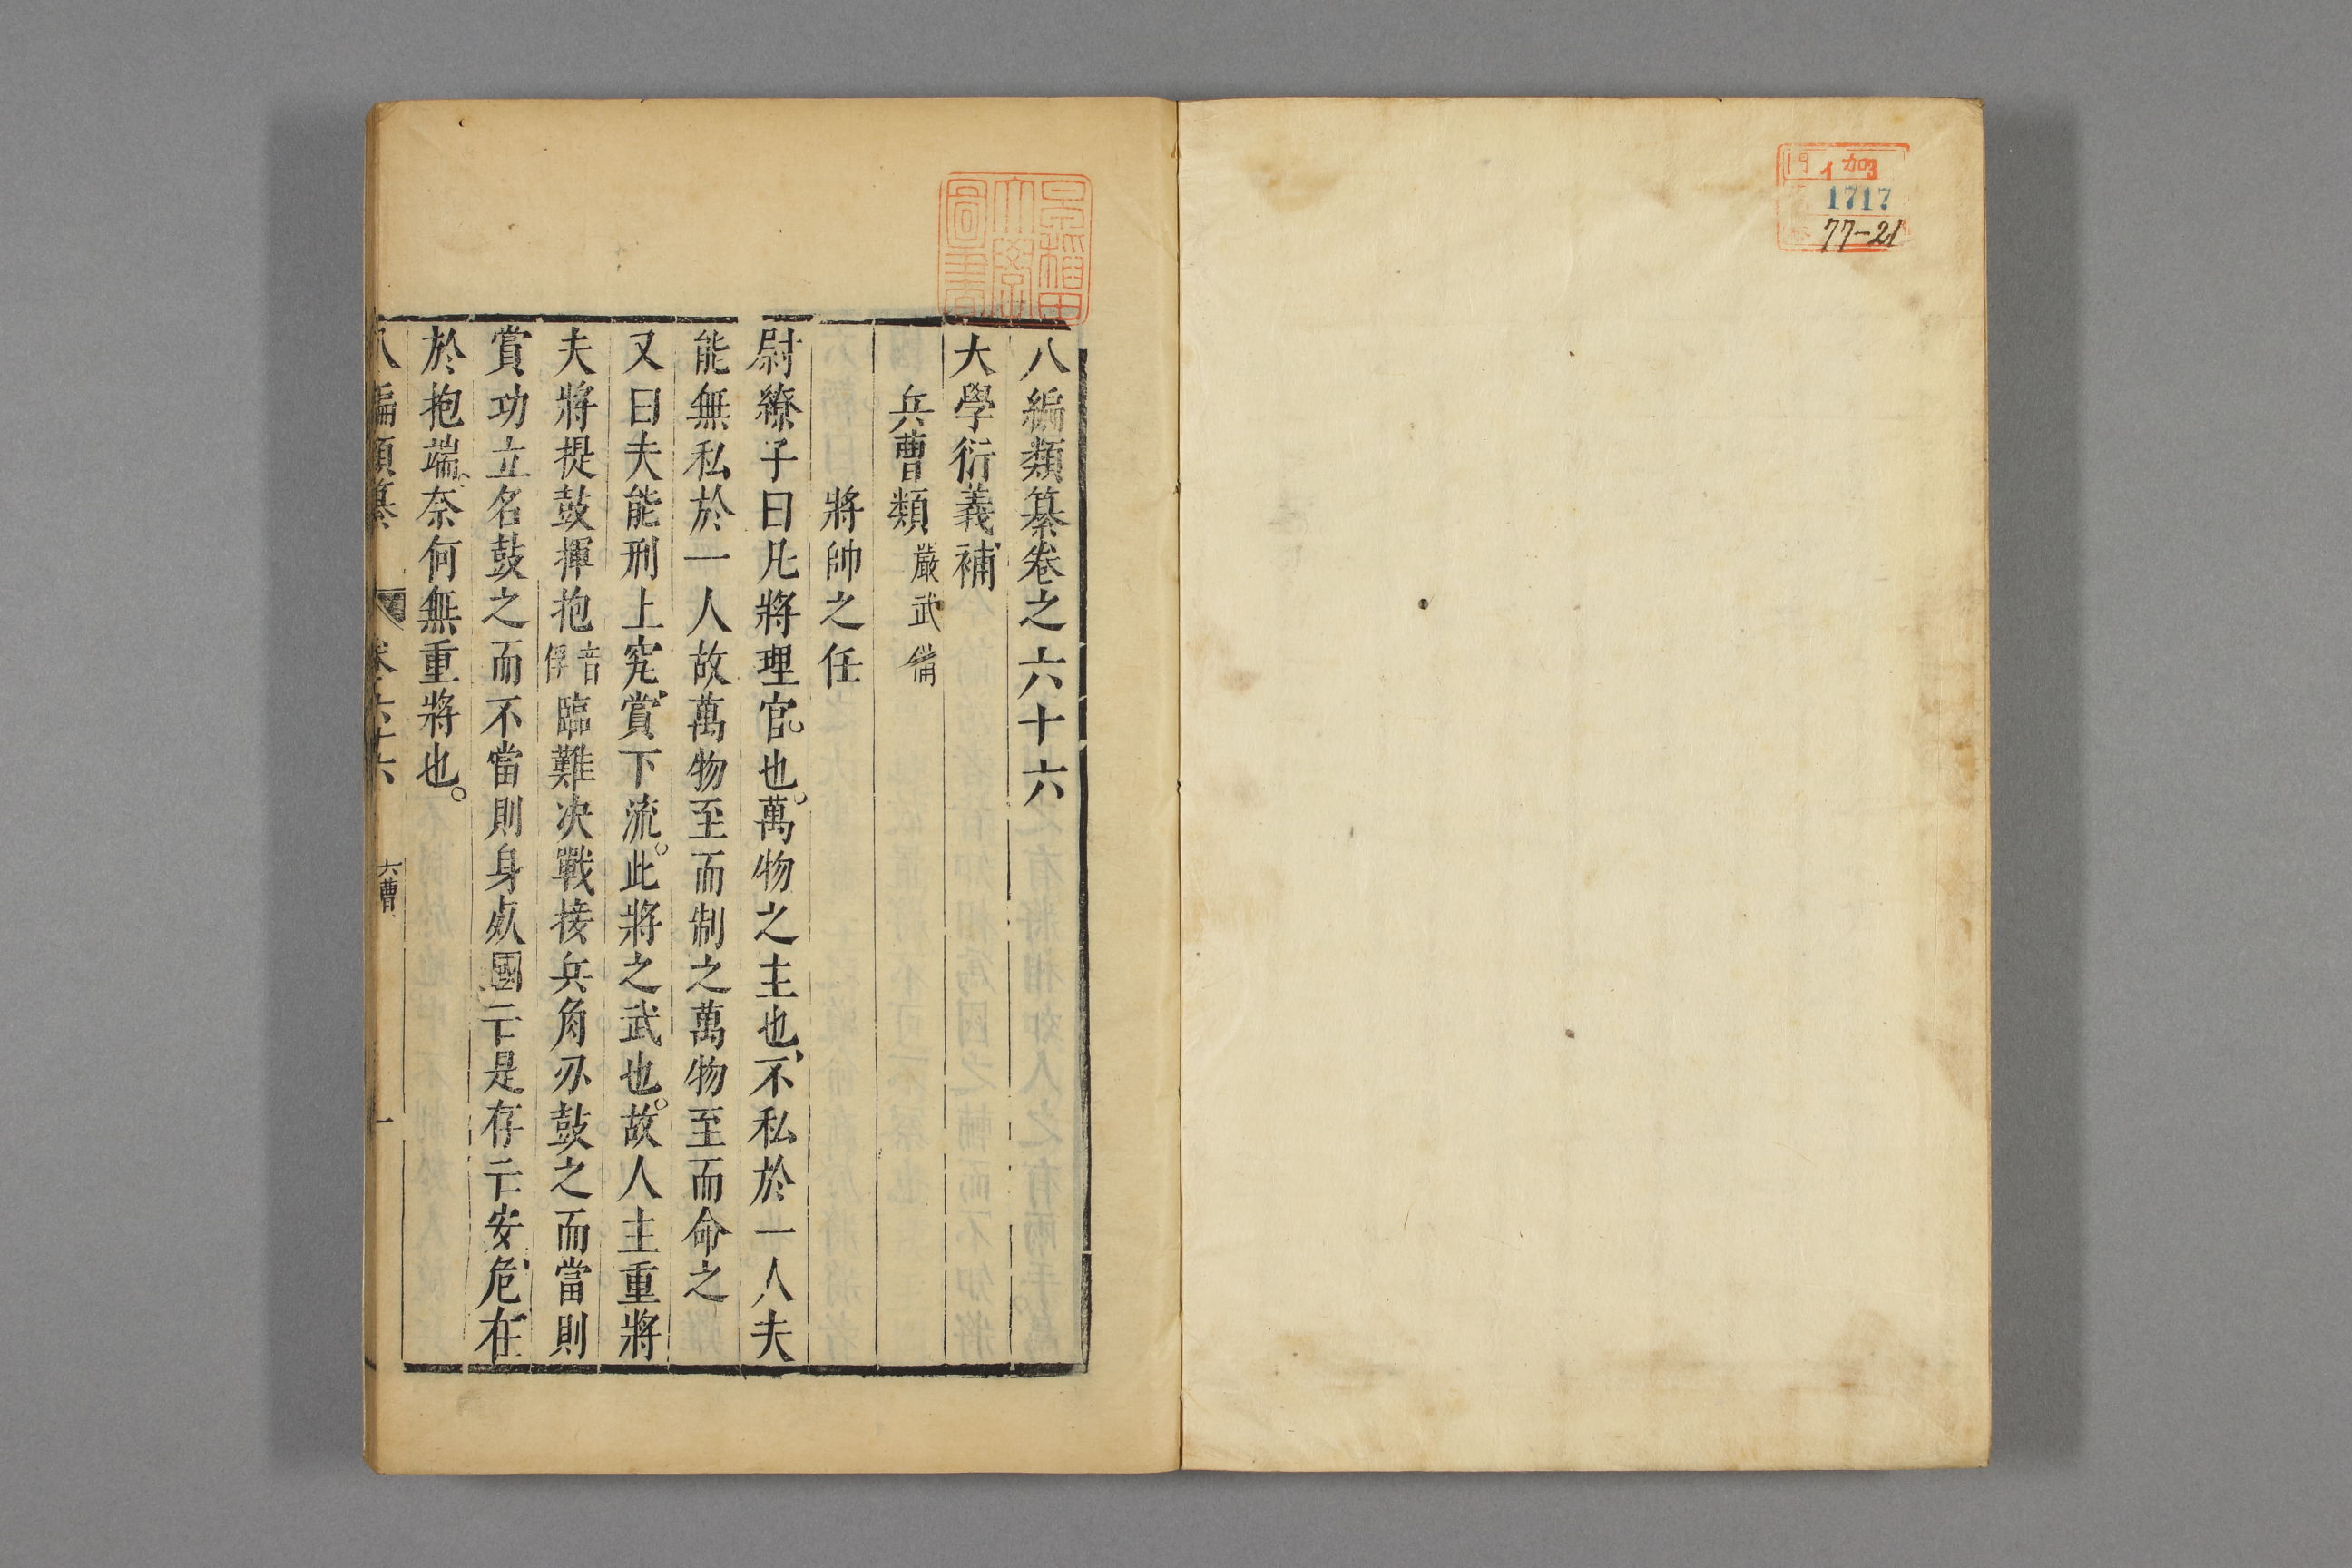 イ 加3
1717
77-21
早稲田
大學
圖書
八編類纂卷之六十六
大學衍義補
兵曹類 嚴武備
將帥之任
尉繚子曰凡將理官也。萬物之主也、不私於一人夫
能無私於一人故萬物至而制之萬物至而命之
又曰夫能刑上究賞下流。此將之武也。故人主重將
夫將提鼓揮抱音俘臨難决戰接兵角刃鼓之而當則
賞功立名鼓之而不當則身死國亡是存亡安危在
於抱端、奈何無重將也。
八編類纂 卷六十六 六曹 一